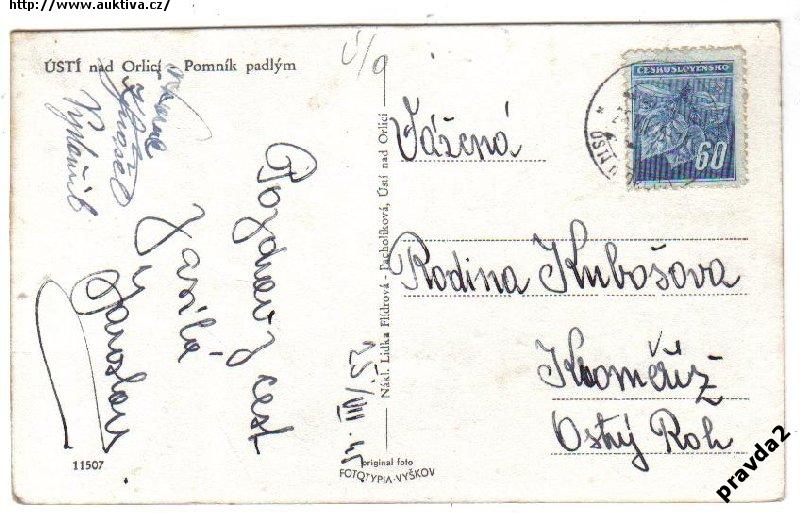 http://www.auktiva.cz/
ÚSTÍ nad Orlicí - Pomník padlým
Ú/O
Pozdrav z cest
zasílá
Jaroslav
Nákl. Lidka Flídrová - Pacholíková, Ústí nad Orlicí
ČESKOSLOVENSKO
60
Vážená
Rodina Kubošova
Kroměříž
Ostrý Roh
11507
original foto
FOTOTYPIA-VYŠKOV
pravda2